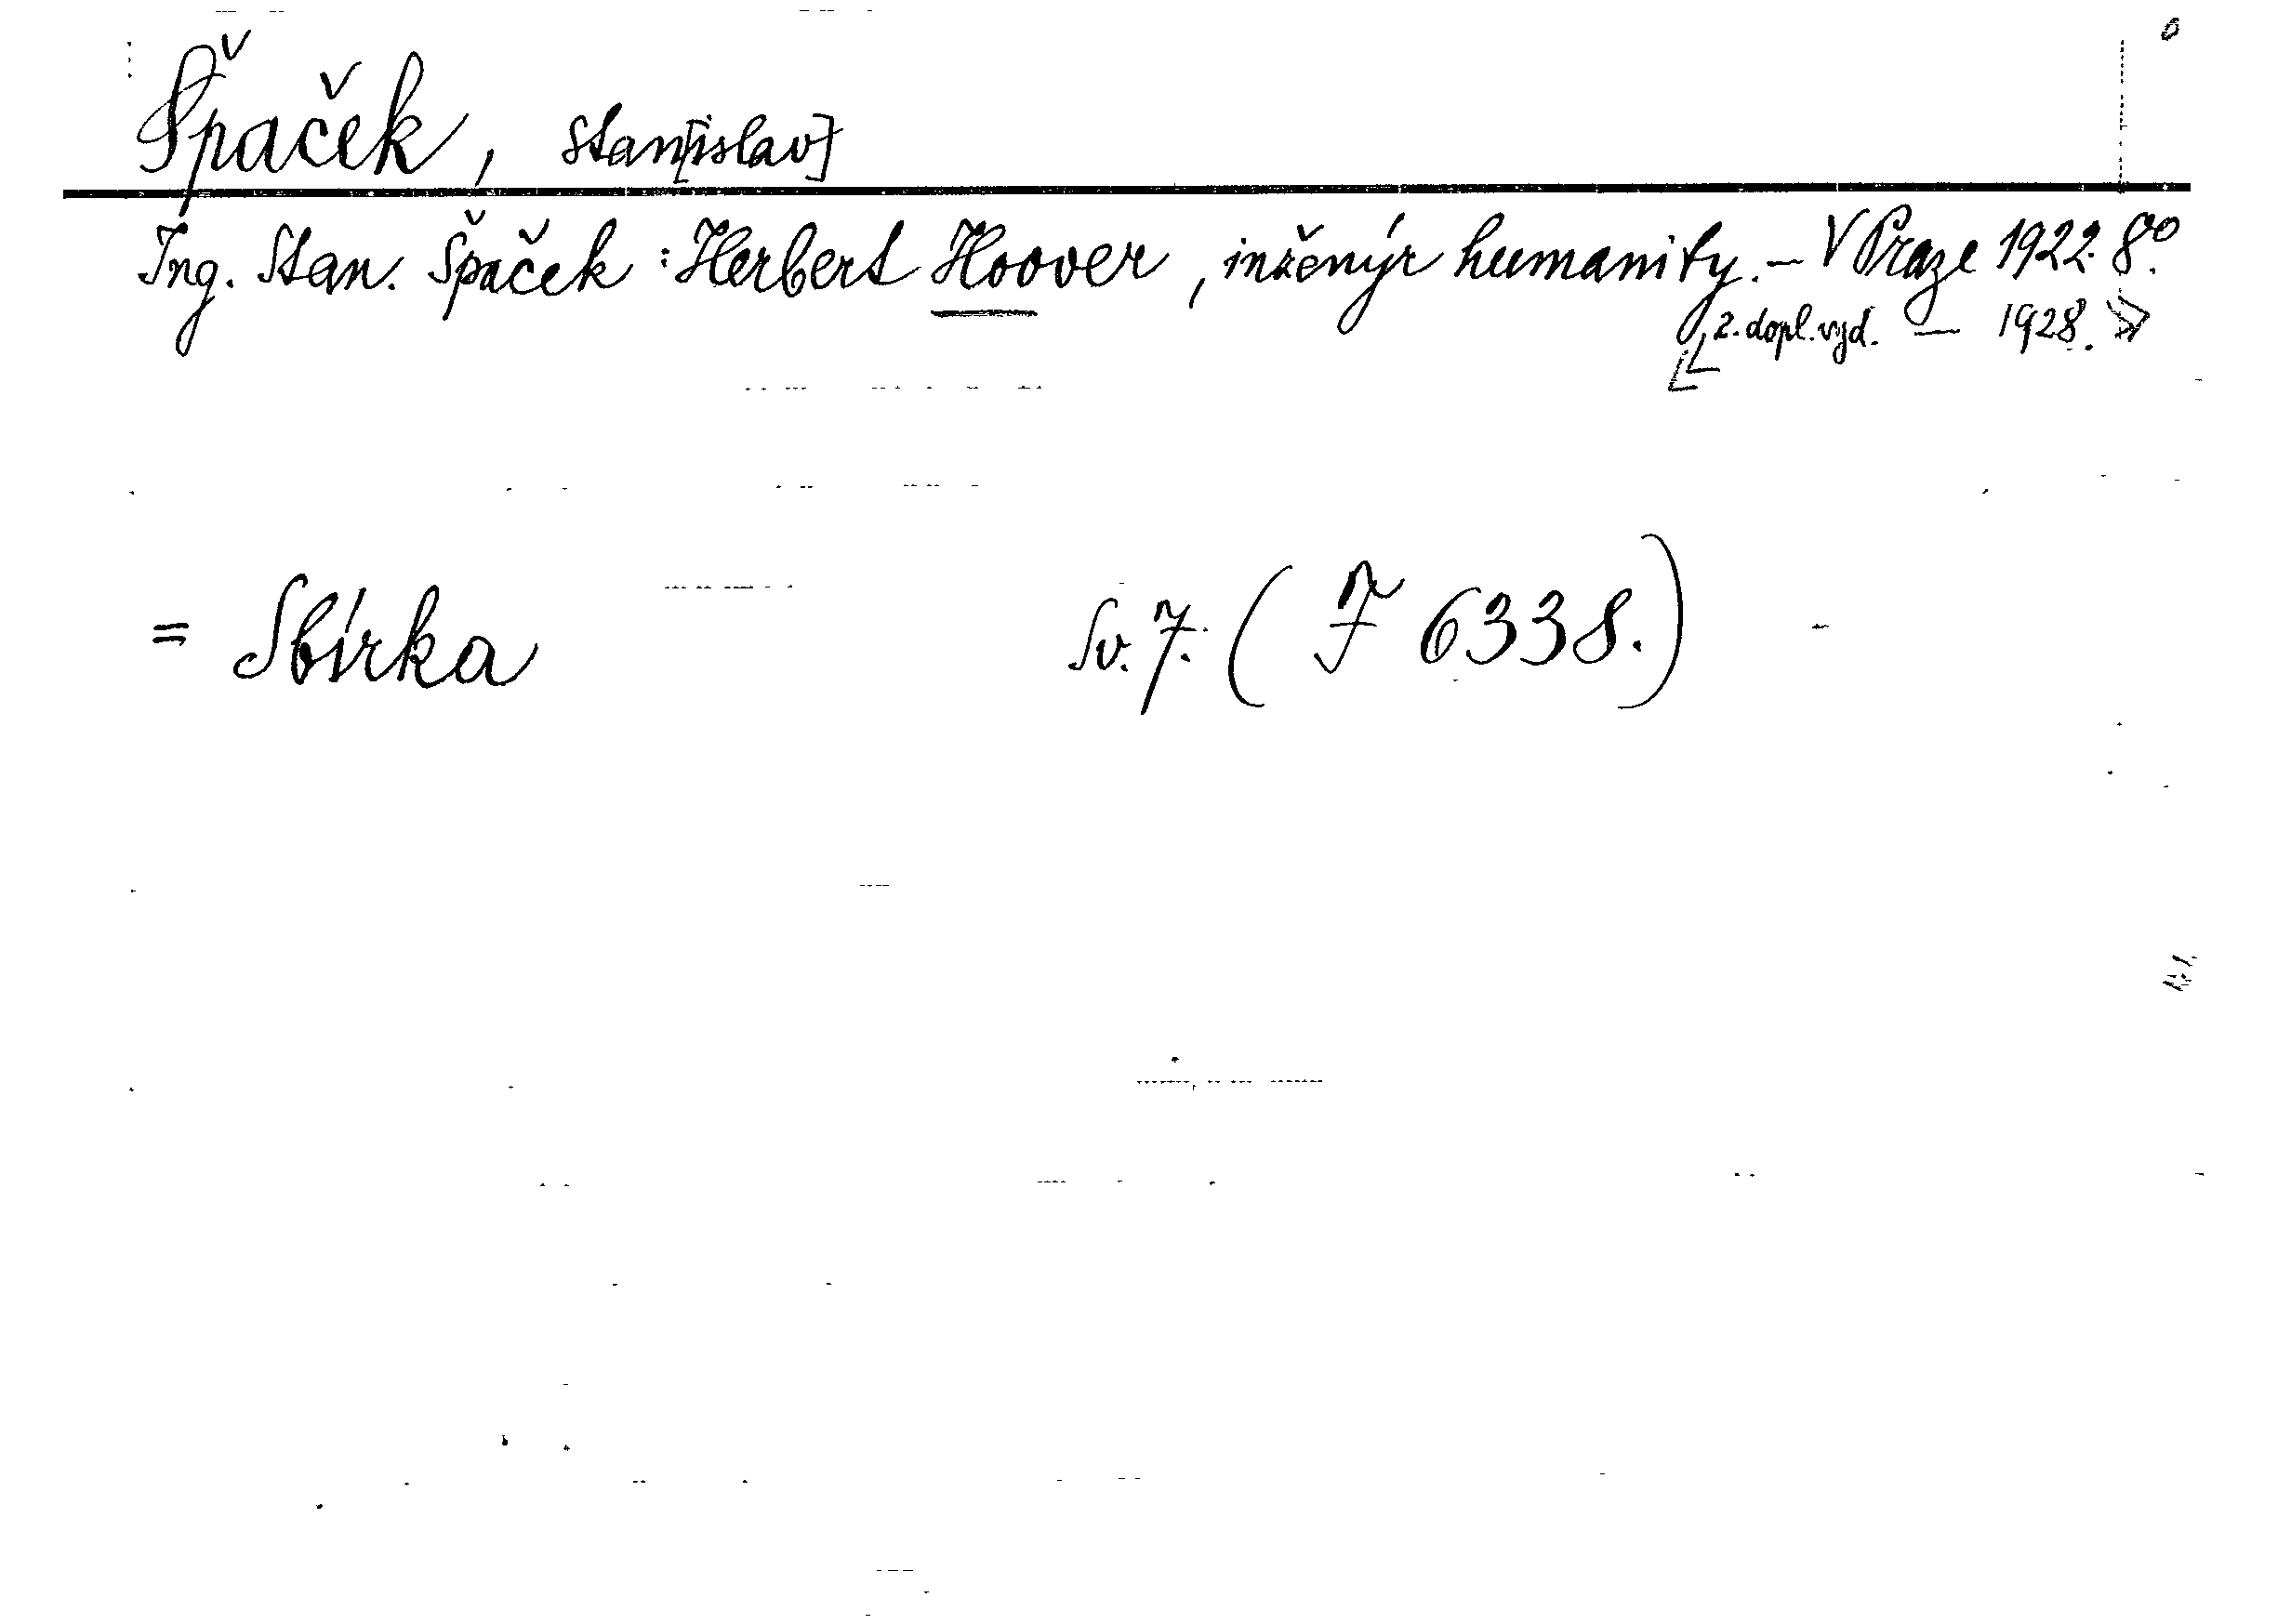 Špaček, Stan[islav]
Ing. Stan. Špaček: Herbert Hoover, inženýr humanity. – V Praze 1922. 8º.
[[2. dopl. vyd. — 1928.]]
= Sbírka Sv. 7. (F 6338.)